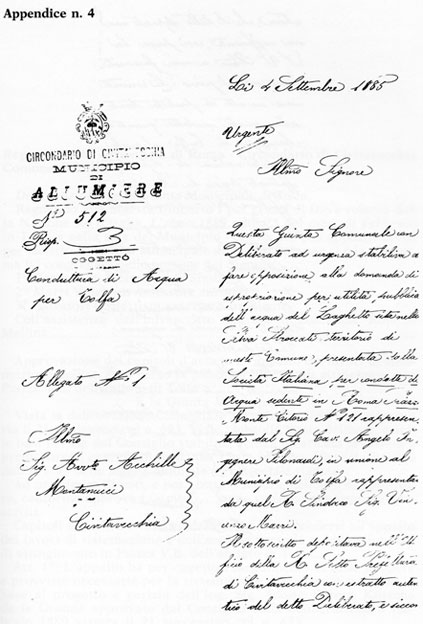 Appendice n. 4
Li 4 Settembre 1885
CIRCONDARIO DI CIVITAVECCHIA
MUNICIPIO
DI
ALLUMIERE
N° 512
Risp. 3
OGGETTO
Conduttura di Acqua
per Tolfa
Allegato N° 1
Illmo
Sig. Avvto Acchille
Montanucci
Civitavecchia
Urgente
Illmo Signore
Questa Giunta Comunale con
Deliberato ad urgenza stabiliva
fare opposizione alla domanda di
espropriazione per utilità pubblica
dell'acqua del Laghetto sito nelle
territorio di
questo Comune, presentata dalla
Società Italiana per condotte di
Acqua sedente in Roma
Monte Citorio N° 121 rappresen
tata dal Sig. Cav. Angelo In
gegnere in unione al
Municipio di Tolfa rappresentato
da quel R. Sindaco Sig. Vin
cenzo Marri.
Il sottoscritto depositava nell'Uf
ficio della R. Sotto Prefettura
di Civitavecchia un estratto auten
tico del detto Deliberato, e sicco